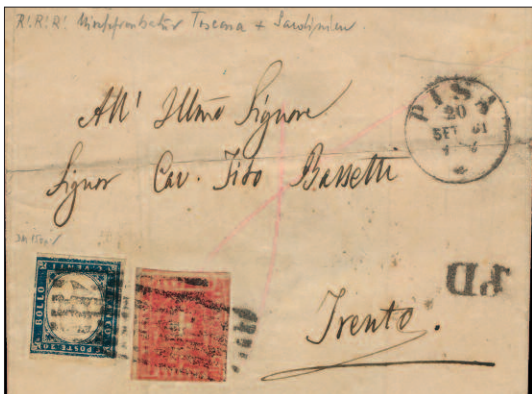 R! R! R! Mischfrankatur Toscana + Sardinien
PISA
20
SET 61
All' Illmo Signore
Signor Cav. Tito Bassetti
PD
BOLLO
POSTE 20
Trento.